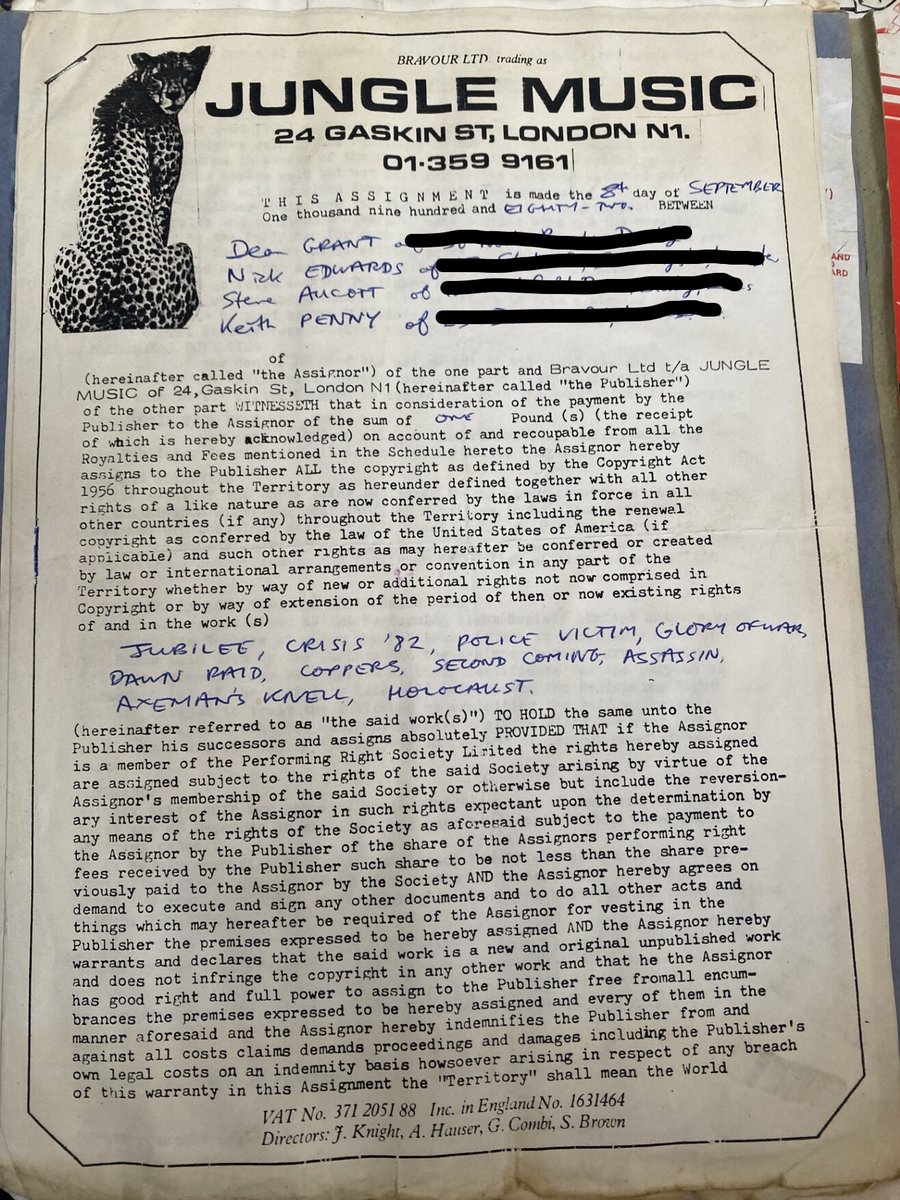 BRAVOUR LTD. trading as
JUNGLE MUSIC
24 GASKIN ST, LONDON N1.
01·359 9161
THIS ASSIGNMENT is made the 8th day of SEPTEMBER
One thousand nine hundred and EIGHTY-TWO. BETWEEN
Dean GRANT of
Nick EDWARDS of
Steve AUCOTT of
Keith PENNY of
of
(hereinafter called "the Assignor") of the one part and Bravour Ltd t/a JUNGLE
MUSIC of 24, Gaskin St, London N1 (hereinafter called "the Publisher")
of the other part WITNESSETH that in consideration of the payment by the
Publisher to the Assignor of the sum of ONE Pound (s) (the receipt
of which is hereby acknowledged) on account of and recoupable from all the
Royalties and Fees mentioned in the Schedule hereto the Assignor hereby
assigns to the Publisher ALL the copyright as defined by the Copyright Act
1956 throughout the Territory as hereunder defined together with all other
rights of a like nature as are now conferred by the laws in force in all
other countries (if any) throughout the Territory including the renewal
copyright as conferred by the law of the United States of America (if
applicable) and such other rights as may hereafter be conferred or created
by law or international arrangements or convention in any part of the
Territory whether by way of new or additional rights not now comprised in
Copyright or by way of extension of the period of then or now existing rights
of and in the work (s)
JUBILEE, CRISIS '82, POLICE VICTIM, GLORY OF WAR,
DAWN RAID, COPPERS, SECOND COMING, ASSASSIN,
AXEMAN'S KNELL, HOLOCAUST.
(hereinafter referred to as "the said work(s)") TO HOLD the same unto the
Publisher his successors and assigns absolutely PROVIDED THAT if the Assignor
is a member of the Performing Right Society Lirited the rights hereby assigned
are assigned subject to the rights of the said Society arising by virtue of the
Assignor's membership of the said Society or otherwise but include the reversion-
ary interest of the Assignor in such rights expectant upon the determination by
any means of the rights of the Society as aforesaid subject to the payment to
the Assignor by the Publisher of the share of the Assignors performing right
fees received by the Publisher such share to be not less than the share pre-
viously paid to the Assignor by the Society AND the Assignor hereby agrees on
demand to execute and sign any other documents and to do all other acts and
things which may hereafter be required of the Assignor for vesting in the
Publisher the premises expressed to be hereby assigned AND the Assignor hereby
warrants and declares that the said work is a new and original unpublished work
and does not infringe the copyright in any other work and that he the Assignor
has good right and full power to assign to the Publisher free fromall encum-
brances the premises expressed to be hereby assigned and every of them in the
manner aforesaid and the Assignor hereby indemnifies the Publisher from and
against all costs claims demands proceedings and damages including the Publisher's
own legal costs on an indemnity basis howsoever arising in respect of any breach
of this warranty in this Assignment the "Territory" shall mean the World
VAT No. 371 2051 88 Inc. in England No. 1631464
Directors: J. Knight, A. Hauser, G. Combi, S. Brown